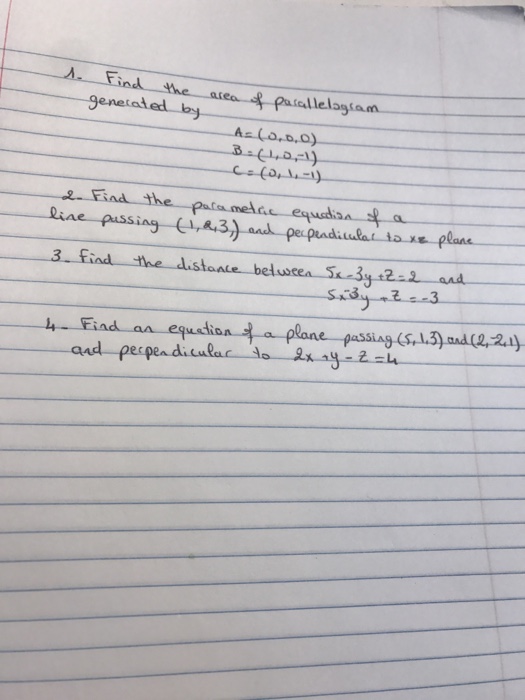 1. Find the area of parallelogram
generated by
A=(0,0,0)
B=(1,0,-1)
C=(0,1,-1)
2- Find the parametric equation of a
line passing (1,2,3,) and perpendicular to xz plane
3- Find the distance between 5x-3y+z=2 and
5x-3y+z=-3
4- Find an equation of a plane passing (5,1,3) and (2,-2,1)
and perpendicular to 2x+y-z=4